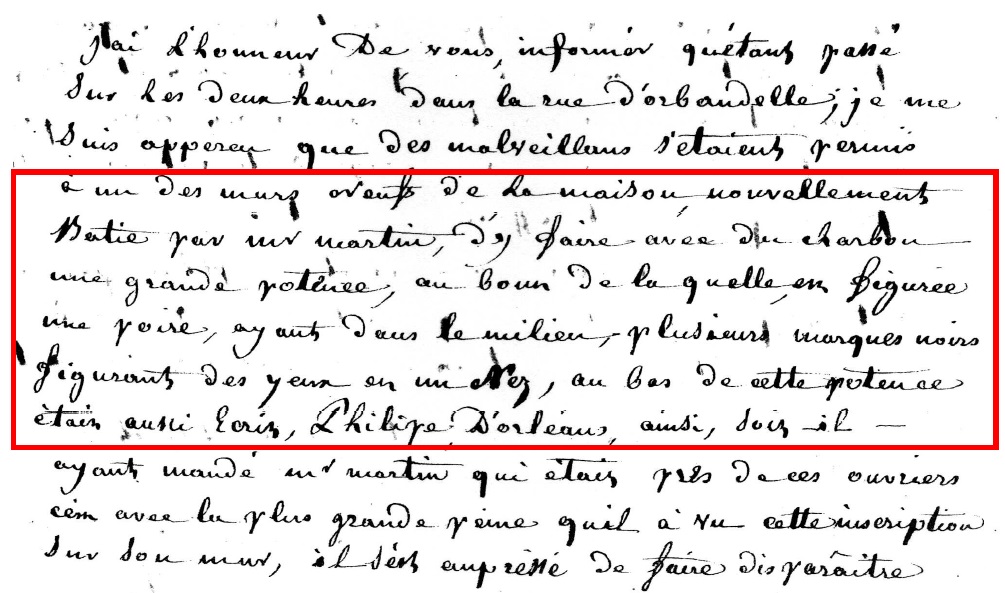 J'ai L'honneur De vous, informér qu'étant passé
Sur Les deux heures dans la rue d'orbandelle, je me
Suis apperçu que des malveillans s'étaient permis
à un des murs de La maison nouvellement
Batie par mr martin, d'y faire avec du charbon
une grande potence, au boun de la quelle en figurée
une poire, ayant dans le milieu, plusieurs marques noirs
figurant des yeux en un Nez, au bas de cette potence
étais aussi Ecris, Philipe D'orléans, ainsi, Sois il —
ayant mandé mr martin qui étais près de ces ouvriers
c'én avec la plus grande péine quil à vu cette inscription
Sur Son mur, il s'ést empréssé de faire disparâitre